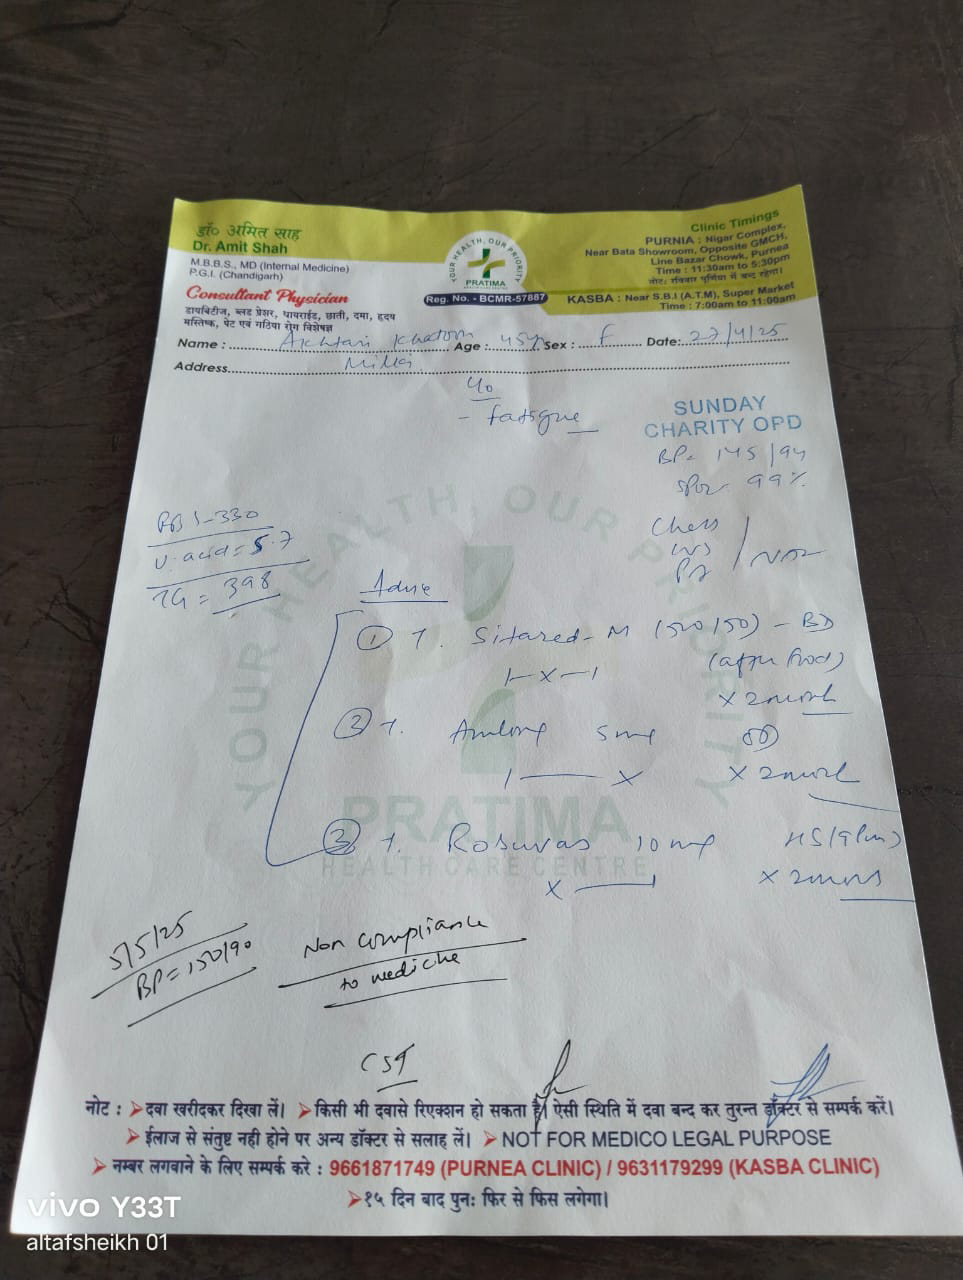 डॉ० अमित साह
Dr. Amit Shah
M.B.B.S., MD (Internal Medicine)
P.G.I. (Chandigarh)
Consultant Physician
डायबिटीज, ब्लड प्रेशर, थायराईड, छाती, दमा, हृदय
मस्तिष्क, पेट एवं गठिया रोग विशेषज्ञ
YOUR HEALTH, OUR PRIORITY
PRATIMA
HEALTH CARE CENTRE
Reg. No. - BCMR-57887
Clinic Timings
PURNIA : Nigar Complex,
Near Bata Showroom, Opposite GMCH,
Line Bazar Chowk, Purnea
Time : 11:30am to 5:30pm
नोट: रविवार पूर्णिया में बन्द रहेगा।
KASBA : Near S.B.I (A.T.M), Super Market
Time : 7:00am to 11:00am
Name : Akhtari Khatoon Age : 45y Sex : F Date: 27/4/25
Address
c/o
- fatigue
SUNDAY
CHARITY OPD
BP= 145/94
SPO2 99%
RBS-330
U. acid = 5.7
TG = 398
Chest
CVS
PA
Advise
① T. Sitared-M (500/50) - BD
1-X-1 (after food)
X 2 month
② T. Amlong 5mg OD
1 — X X 2 month
③ T. Rosuvas 10mg HS (9pm)
X — 1 X 2 months
YOUR HEALTH, OUR PRIORITY
PRATIMA
HEALTH CARE CENTRE
5/5/25
BP = 150/90
Non compliance
to medicine
CST
नोट : ➤दवा खरीदकर दिखा लें। ➤किसी भी दवासे रिएक्शन हो सकता है। ऐसी स्थिति में दवा बन्द कर तुरन्त डॉक्टर से सम्पर्क करें।
➤ईलाज से संतुष्ट नही होने पर अन्य डॉक्टर से सलाह लें। ➤NOT FOR MEDICO LEGAL PURPOSE
➤नम्बर लगवाने के लिए सम्पर्क करे : 9661871749 (PURNEA CLINIC) / 9631179299 (KASBA CLINIC)
➤१५ दिन बाद पुनः फिर से फिस लगेगा।
vivo Y33T
altafsheikh 01